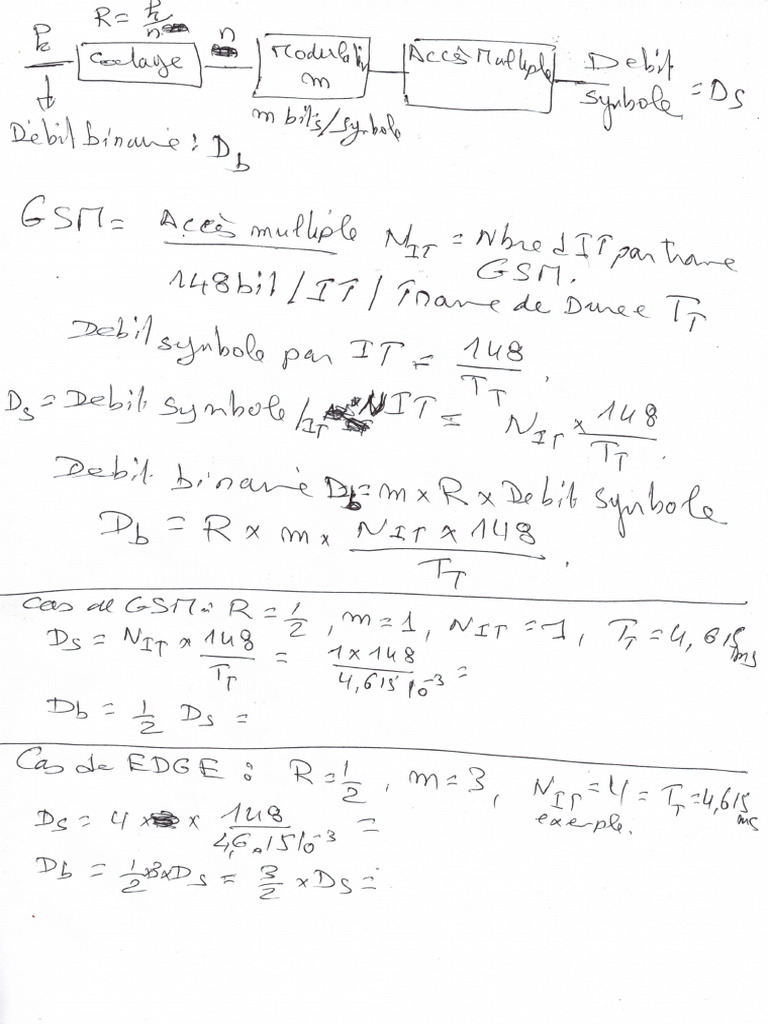 R = k/n
k
Codage
n
Modulation
m
Accès Multiple
Debit
symbole = Ds
m bits/symbole
Débit binaire : Db
GSM = Accès multiple NIT = Nbre d IT par trame
GSM.
148 bit / IT / Trame de Duree TT
Debit symbole par IT = 148/TT.
Ds = Debit symbole / NIT = NIT × 148/TT.
Debit binaire Db = m × R × Debit symbole
Db = R × m × NIT × 148/TT.
Cas de GSM : R = 1/2, m = 1, NIT = 1, TT = 4,615 ms
Ds = NIT × 148/TT = 1 × 148/4,615 10^-3 =
Db = 1/2 Ds =
Cas de EDGE : R = 1/2, m = 3, NIT = 4 = TT = 4,615 ms
exemple.
Ds = 4 × 148/4,615 10^-3 =
Db = 1/2 × 3 × Ds = 3/2 × Ds =